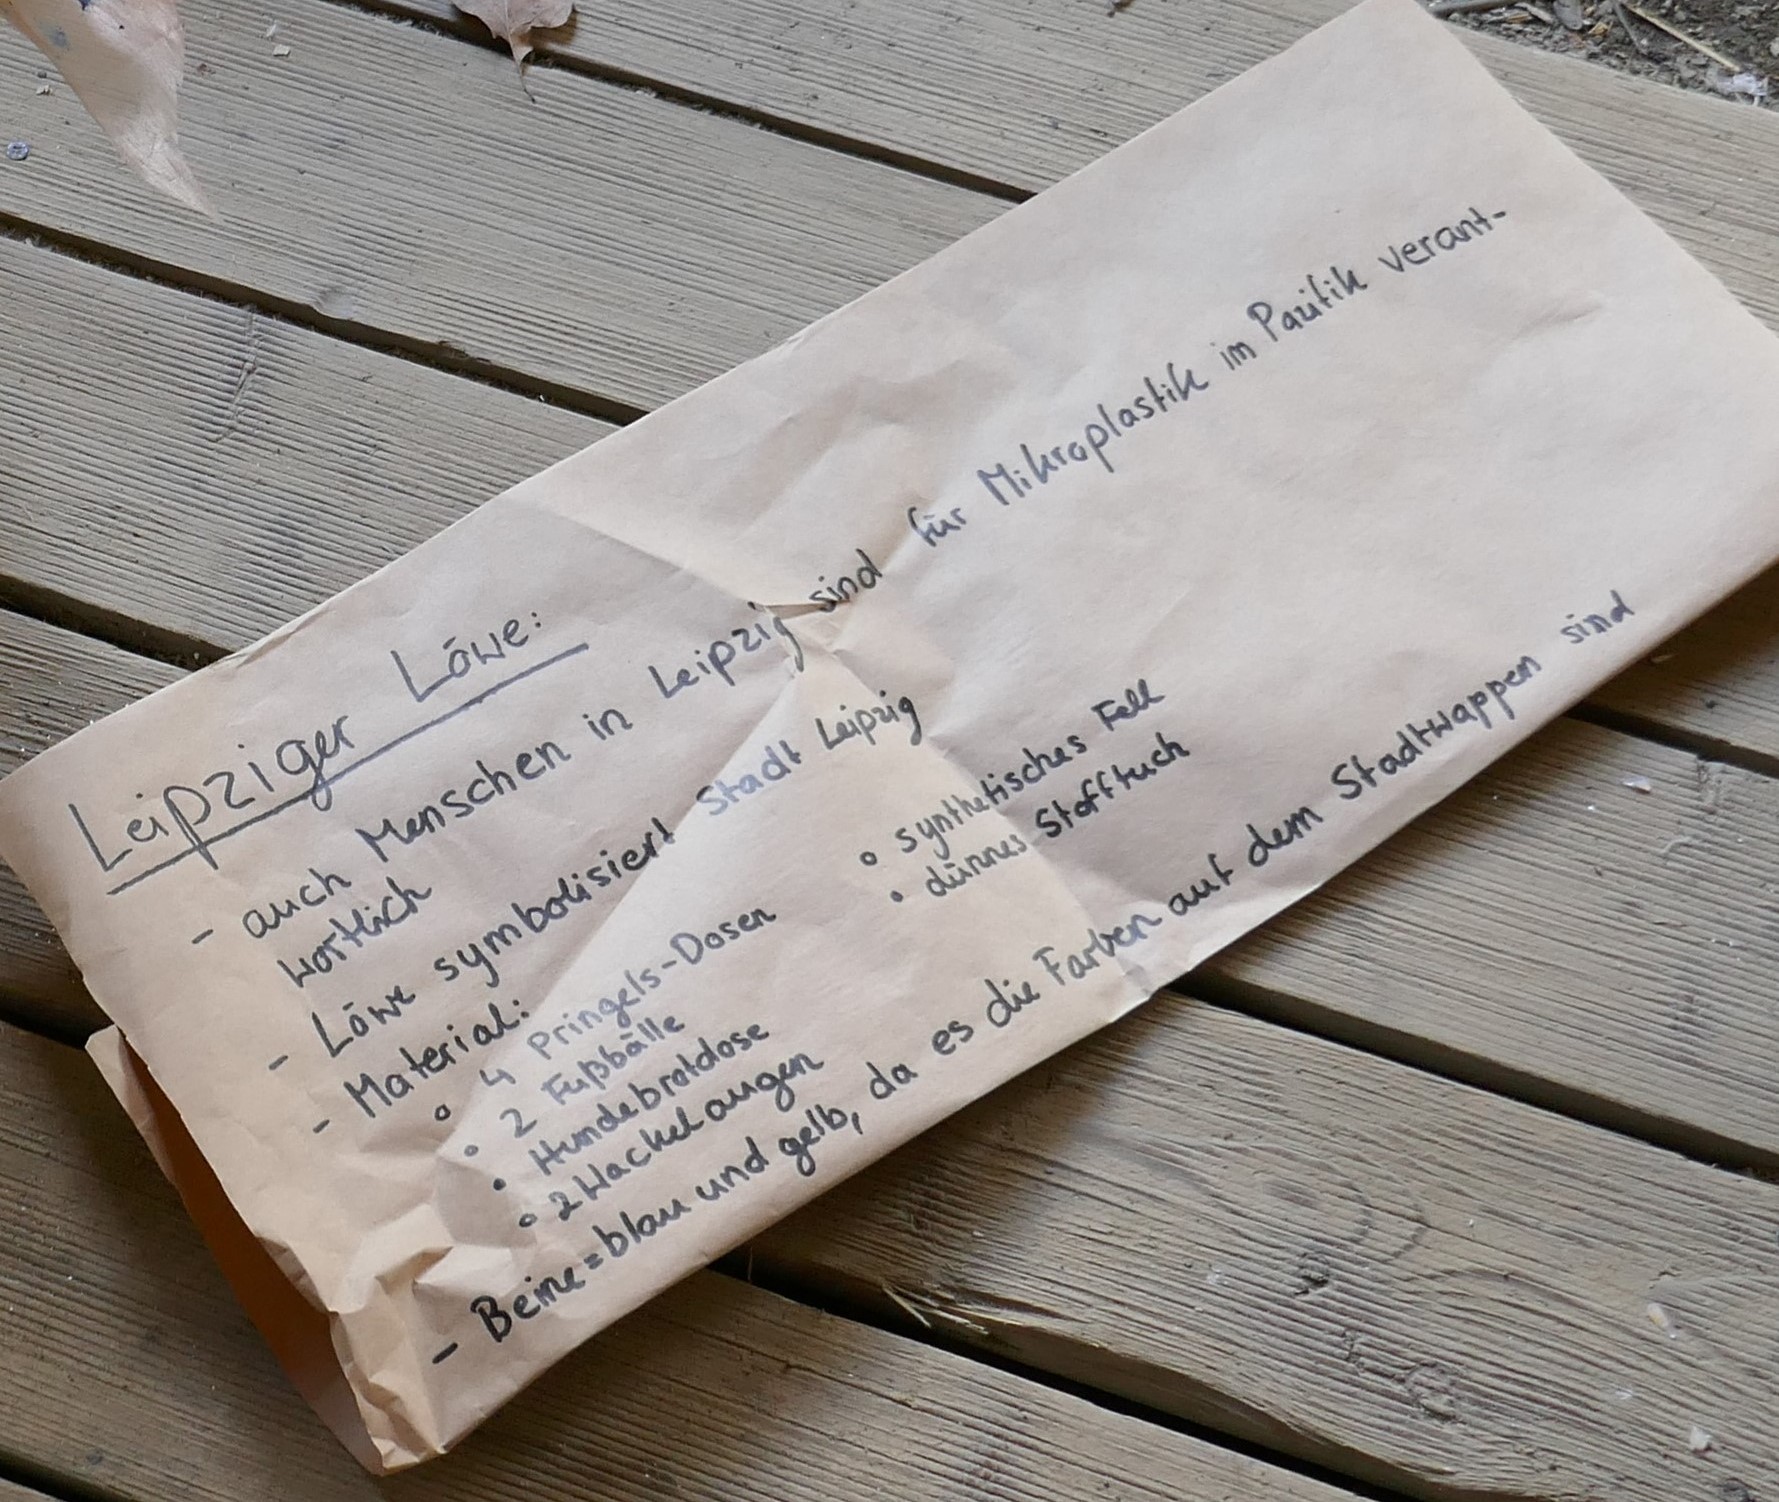 Leipziger Löwe:
- auch Menschen in Leipzig sind für Mikroplastik im Pazifik verant-
wortlich
- Löwe symbolisiert Stadt Leipzig
- Material:
° 4 Pringels-Dosen
° 2 Fußbälle
° Hundebrotdose
° 2 Wackelaugen
° synthetisches Fell
° dünnes Stofftuch
- Beine = blau und gelb, da es die Farben auf dem Stadtwappen sind